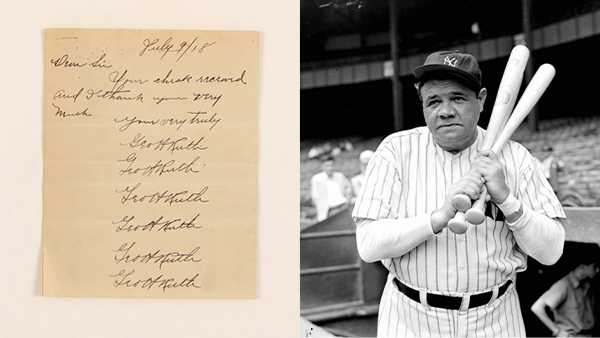 July 9/18
Dear Sir
Your check received
and I thank you very
much
Your very truly
Geo H Ruth
Geo H Ruth
Geo H Ruth
Geo H Ruth
Geo H Ruth
Geo H Ruth
NY